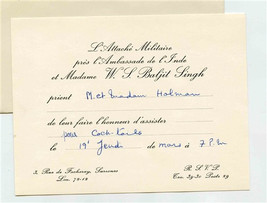 L'Attaché Militaire
près l'Ambassade de l'Inde
et Madame W. S. Baljit Singh
prient M. et Madam Holman
de leur faire l'honneur d'assister
pour Cock-tails
le 19 Jeudi de mars à 7 P.M
3, Rue de Suresnes
R.S.V.P.